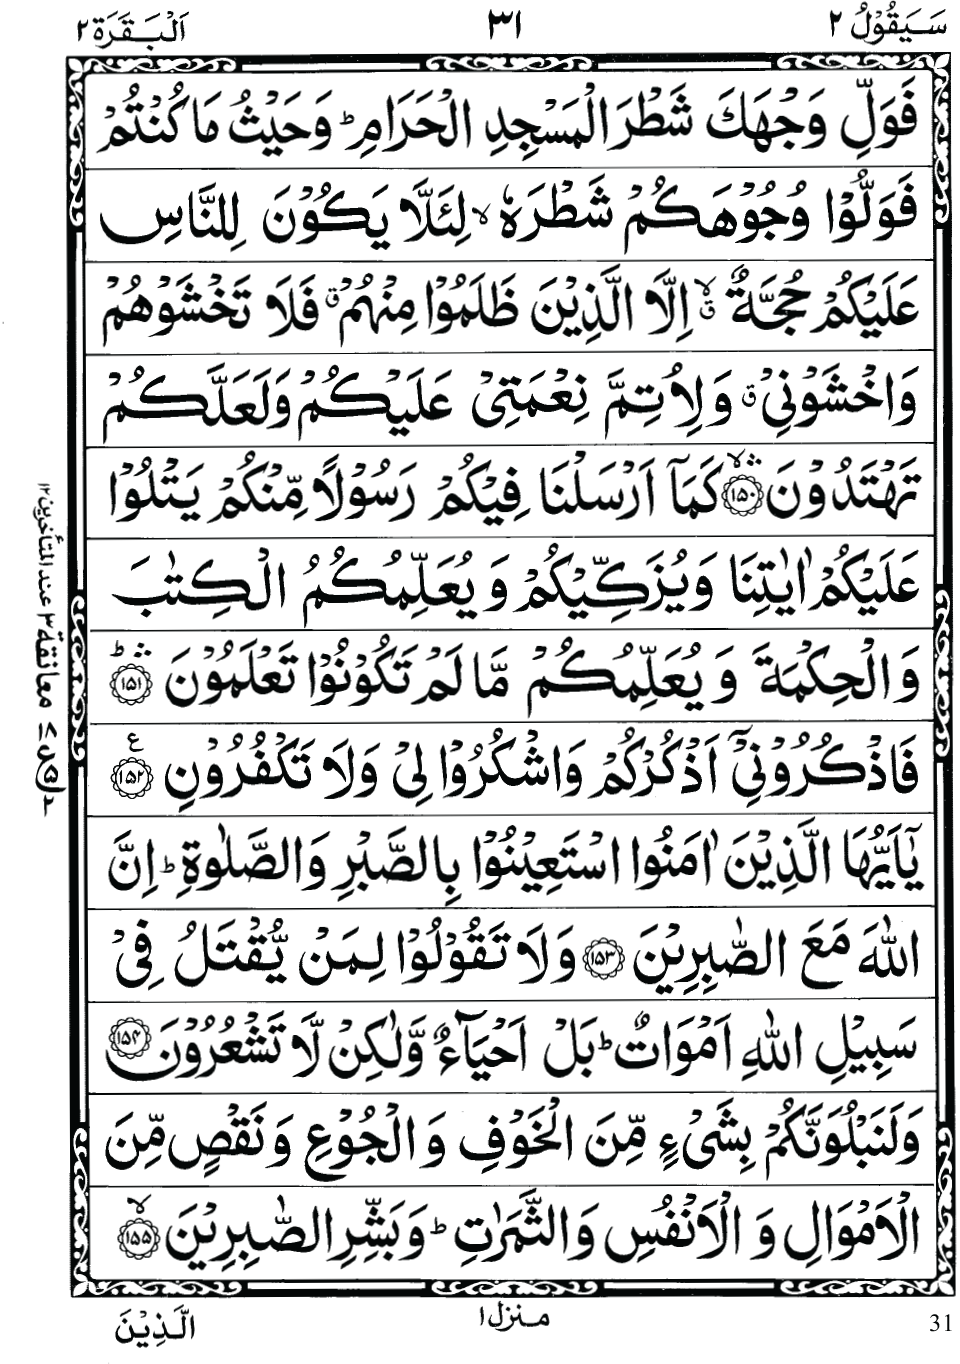 سَيَقُوْلُ ٢
٣١
اَلْبَقَرَة ٢
فَوَلِّ وَجْهَكَ شَطْرَ الْمَسْجِدِ الْحَرَامِ ؕ وَحَيْثُ مَا كُنْتُمْ
فَوَلُّوْا وُجُوْهَكُمْ شَطْرَهٗ ۙ لِئَلَّا يَكُوْنَ لِلنَّاسِ
عَلَيْكُمْ حُجَّةٌ ۙۗ اِلَّا الَّذِيْنَ ظَلَمُوْا مِنْهُمْ ۗ فَلَا تَخْشَوْهُمْ
وَاخْشَوْنِيْ ۗ وَلِاُتِمَّ نِعْمَتِيْ عَلَيْكُمْ وَلَعَلَّكُمْ
تَهْتَدُوْنَ ۛۙ ﴿۱۵۰﴾ كَمَاۤ اَرْسَلْنَا فِيْكُمْ رَسُوْلًا مِّنْكُمْ يَتْلُوْا
عَلَيْكُمْ اٰيٰتِنَا وَيُزَكِّيْكُمْ وَيُعَلِّمُكُمُ الْكِتٰبَ
وَالْحِكْمَةَ وَيُعَلِّمُكُمْ مَّا لَمْ تَكُوْنُوْا تَعْلَمُوْنَ ۛؕ ﴿۱۵۱﴾
فَاذْكُرُوْنِيْۤ اَذْكُرْكُمْ وَاشْكُرُوْا لِيْ وَلَا تَكْفُرُوْنِ ﴿۱۵۲﴾ ع
يٰۤاَيُّهَا الَّذِيْنَ اٰمَنُوا اسْتَعِيْنُوْا بِالصَّبْرِ وَالصَّلٰوةِ ؕ اِنَّ
اللّٰهَ مَعَ الصّٰبِرِيْنَ ﴿۱۵۳﴾ وَلَا تَقُوْلُوْا لِمَنْ يُّقْتَلُ فِيْ
سَبِيْلِ اللّٰهِ اَمْوَاتٌ ؕ بَلْ اَحْيَآءٌ وَّلٰكِنْ لَّا تَشْعُرُوْنَ ﴿۱۵۴﴾
وَلَنَبْلُوَنَّكُمْ بِشَيْءٍ مِّنَ الْخَوْفِ وَالْجُوْعِ وَنَقْصٍ مِّنَ
الْاَمْوَالِ وَالْاَنْفُسِ وَالثَّمَرٰتِ ؕ وَبَشِّرِ الصّٰبِرِيْنَ ۙ ﴿۱۵۵﴾
معانقة ٣ عند المتأخرين ١٢
منزل ١
الَّذِيْنَ
31